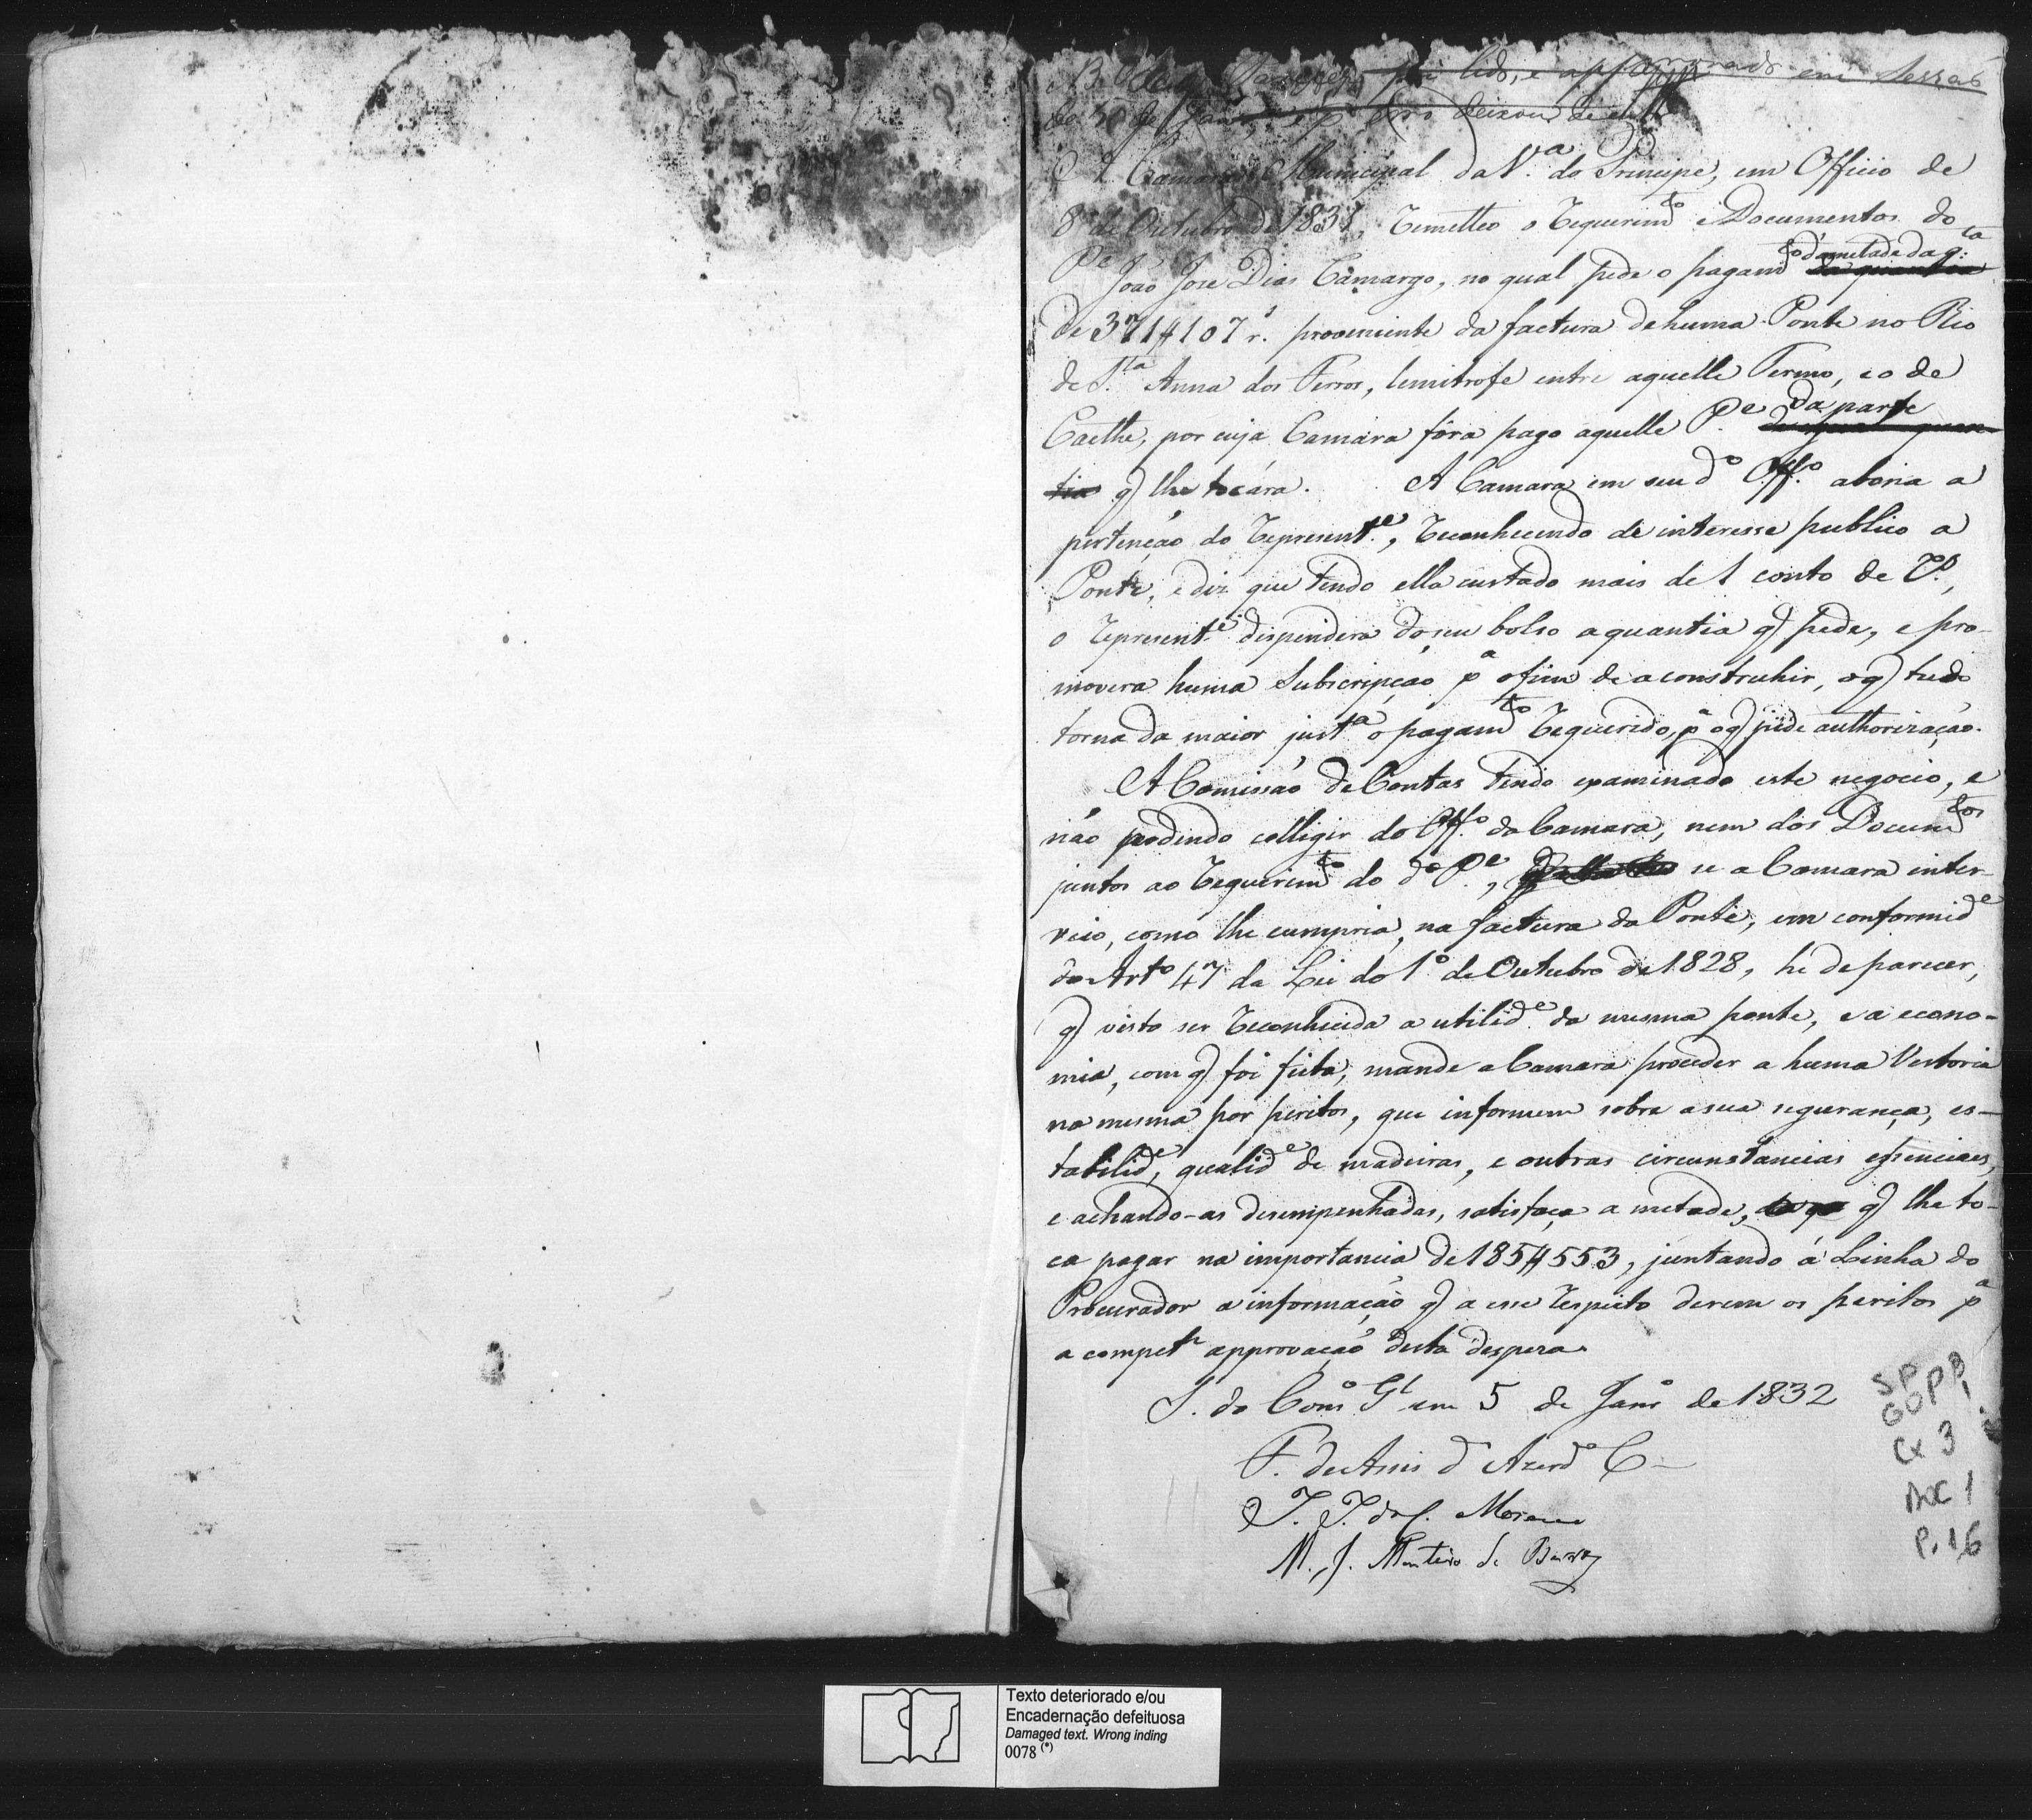 foi lido, e approvado em Sessaõ
do 5 de Jan.º e p.ʳ erro deixou de
A Camara Municipal da V.ª do Principe, em Officio de
8 de Outubro de 1831, remetteo o requerim.ᵗᵒ e Documentos do
P.ᵉ Joaõ Jose Dias Camargo, no qual pede o pagam.ᵗᵒ da metade da q.ᵗⁱᵃ da quantia
de 371#107 rˢ. proveniente da factura de huma Ponte no Rio
de S.ᵗᵃ Anna dos Ferros, lemitrofe entre aquelle Termo, e o de
Caethe, por cuja Camara fôra pago aquelle P.ᵉ da parte
tia q̃ lhe tocára. A Camara em seu d.º Off.º abona a
pertençaõ do represent.ᵉ, reconhecendo de interesse publico a
Ponte, e diz que tendo ella custado mais de 1 conto de r.ˢ,
o represent.ᵉ dispendera do seu bolso a quantia q̃ pede, e pro-
movera huma Subscripçaõ p.ª o fim de a construhir, o q̃ tudo
torna da maior just.ª o pagam.ᵗᵒ requerido, p.ª o q̃ pede authorizaçaõ.
A Comissaõ de Contas tendo examinado este negocio, e
naõ podendo colligir do Off.º da Camara, nem dos Docum.ᵗᵒˢ
juntos ao requerim.ᵗᵒ do d.º P.ᵉ, se a Camara inter-
veio, como lhe cumpria, na factura da Ponte, em conformid.ᵉ
do Art.º 47 da Lei do 1.º de Outubro de 1828, he de parecer,
q̃ visto ser reconhecida a utilid.ᵉ da mesma ponte, e a econo-
mia, com q̃ foi feita, mande a Camara proceder a huma Vestoria
na mesma por peritos, que informem sobre a sua segurança, es-
tabilid.ᵉ, qualid.ᵉ de madeiras, e outras circunstancias essenciaes,
e achando-as desempenhadas, satisfaça a metade, q̃ lhe to-
ca pagar na importancia de 185#553, juntando á Linha do
Procurador a informaçaõ q̃ a esse respeito derem os peritos p.ª
a compet.ᵉ approvaçaõ desta despeza.
S. do Cons.º G.ˡ em 5 de Jan.º de 1832
F. de Assis d' Azered.º C.
J. J. da S. Moraes
M. J. Monteiro de Barros
SP
GOPP1
Cx 3
DOC 1
P. 16
Texto deteriorado e/ou
Encadernação defeituosa
Damaged text. Wrong inding
0078 (*)